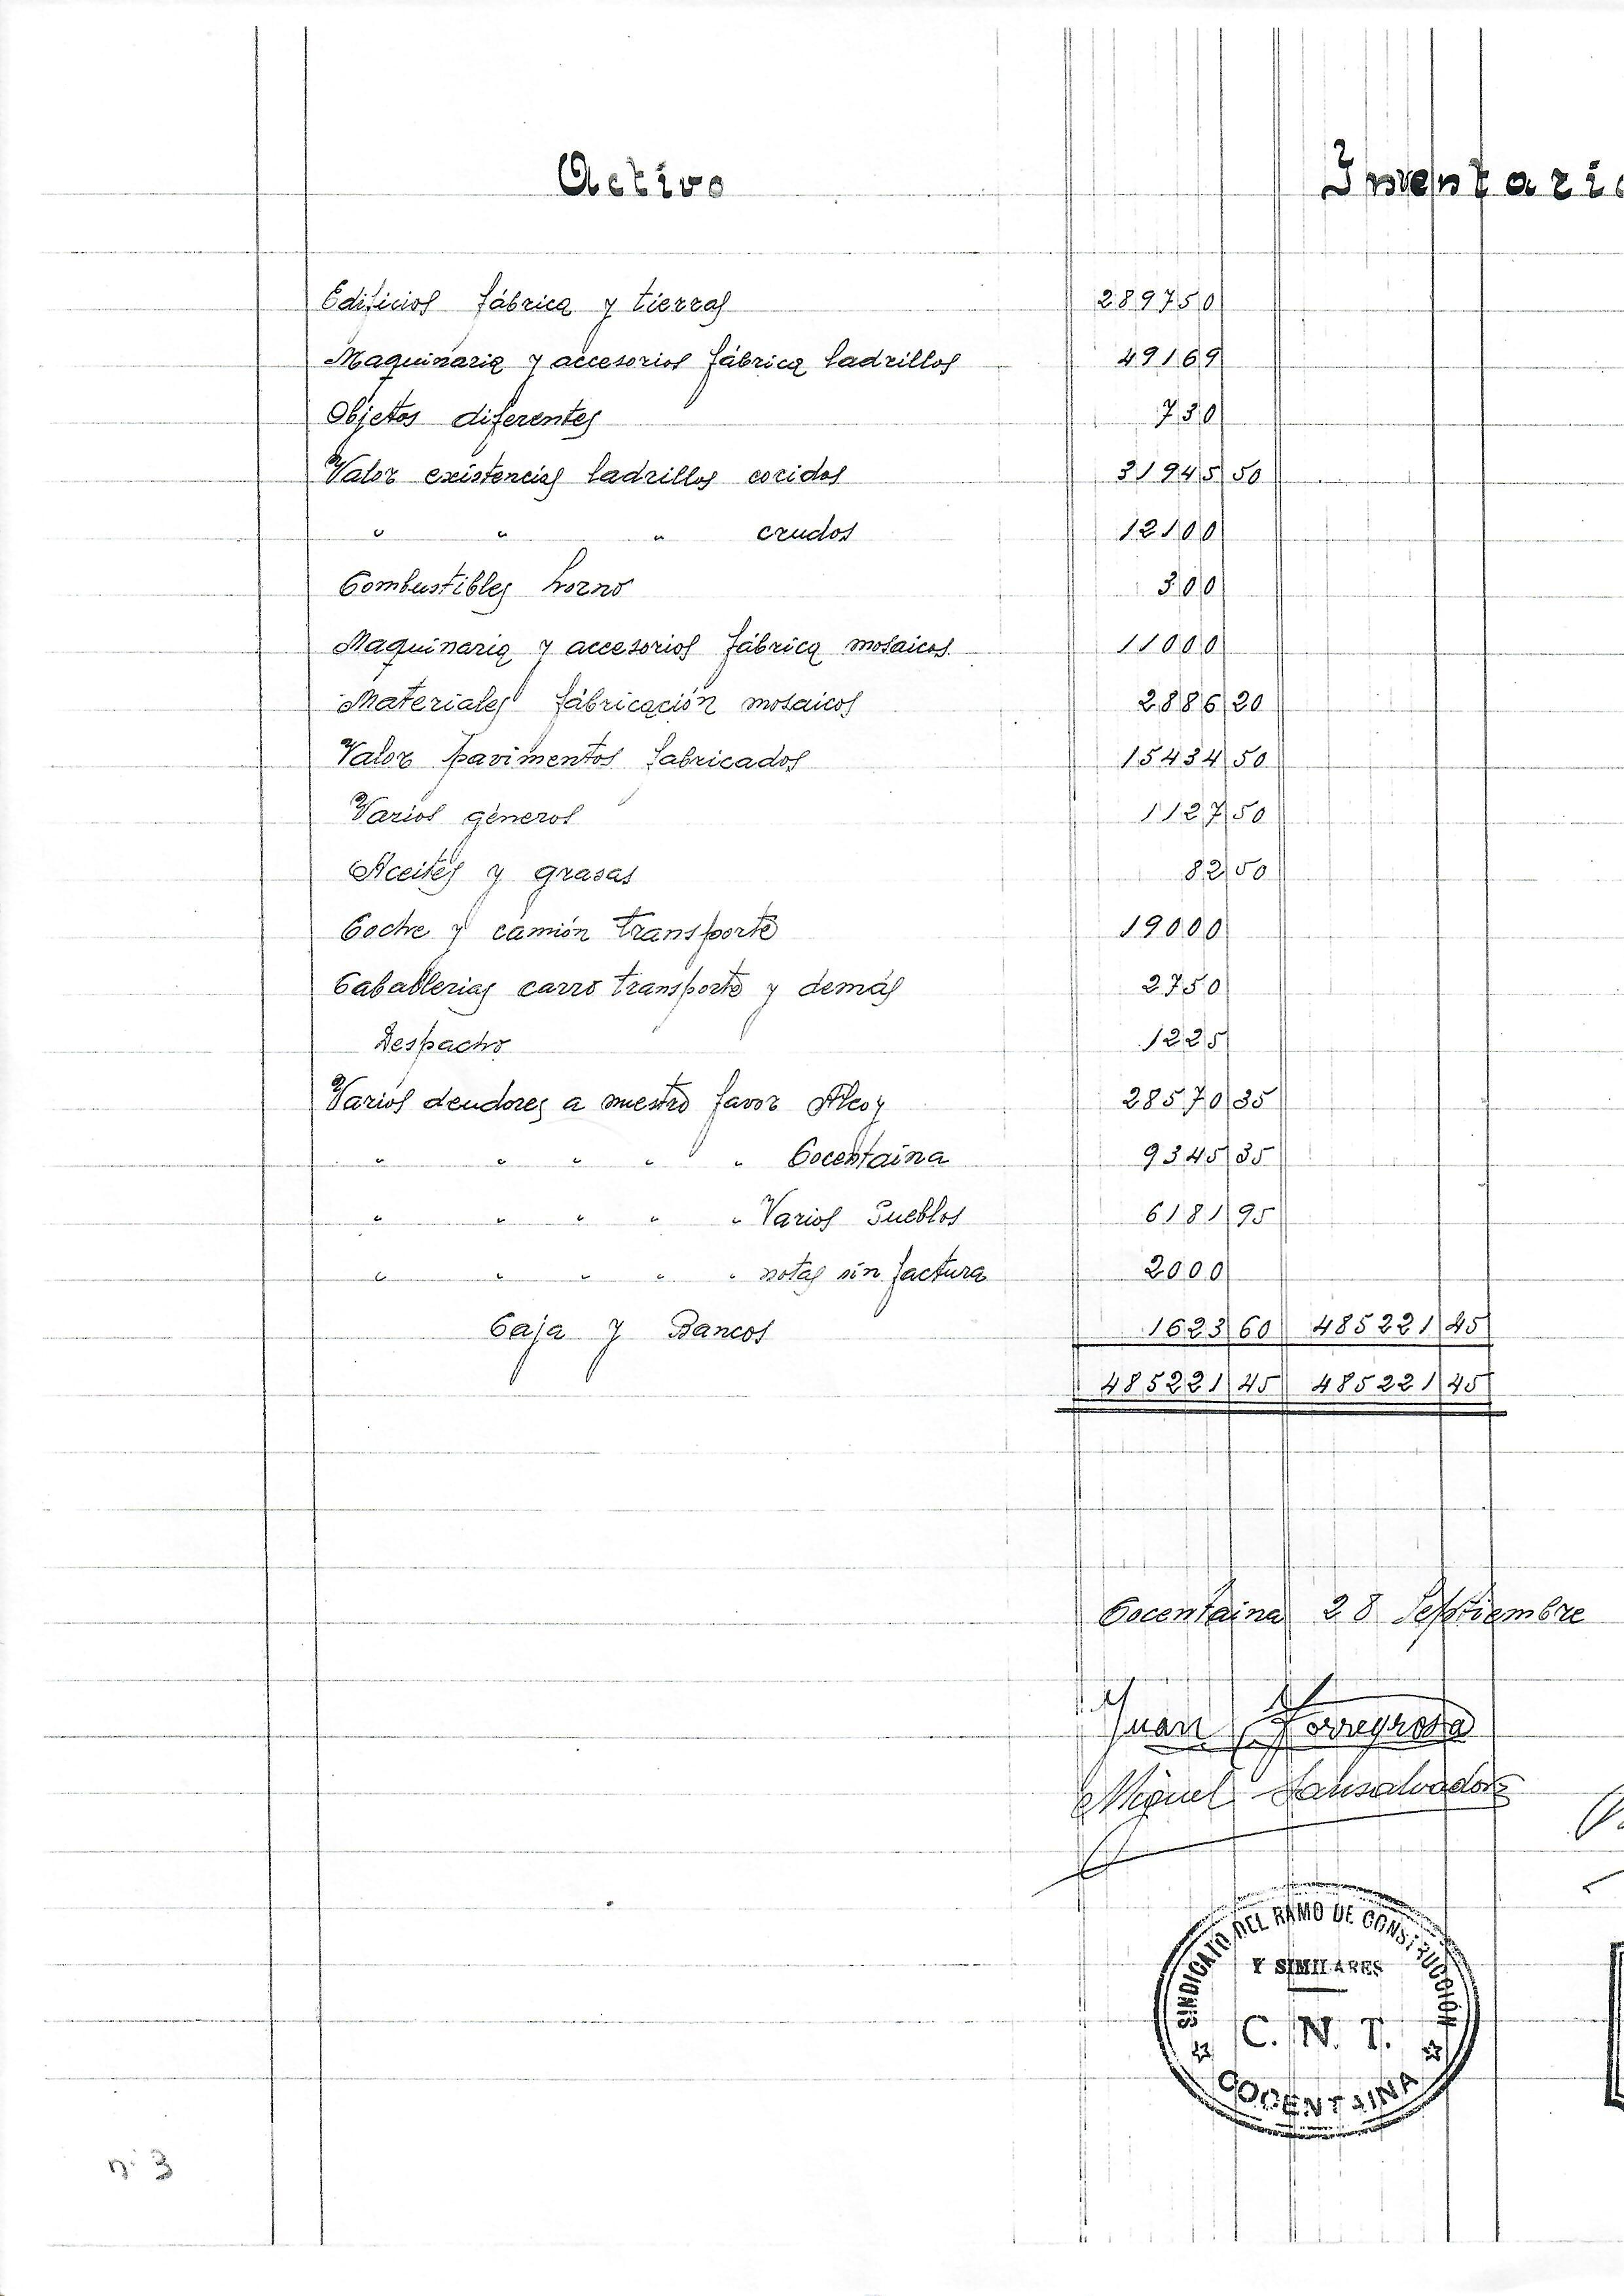 Activo Inventario
Edificios fábrica y tierras 289750
Maquinaria y accesorios fábrica ladrillos 49169
Objetos diferentes 730
Valor existencias ladrillos cocidos 31945 50
" " " crudos 12100
Combustibles horno 300
Maquinaria y accesorios fábrica mosaicos 11000
Materiales fábricación mosaicos 2886 20
Valor pavimentos fabricados 15434 50
Varios géneros 1127 50
Aceites y grasas 82 50
Coche y camión transporte 19000
Caballerias carro transporte y demás 2750
Despacho 1225
Varios deudores a nuestro favor Alcoy 28570 35
" " " " " Cocentaina 9345 35
" " " " " Varios Pueblos 6181 95
" " " " " notas sin factura 2000
Caja y Bancos 1623 60 485221 45
485221 45 485221 45
Cocentaina 28 Septiembre
Juan Torregrosa
Miguel Sansalvador
SINDICATO DEL RAMO DE CONSTRUCCIÓN
Y SIMILARES
C. N. T.
COCENTAINA
nº 3